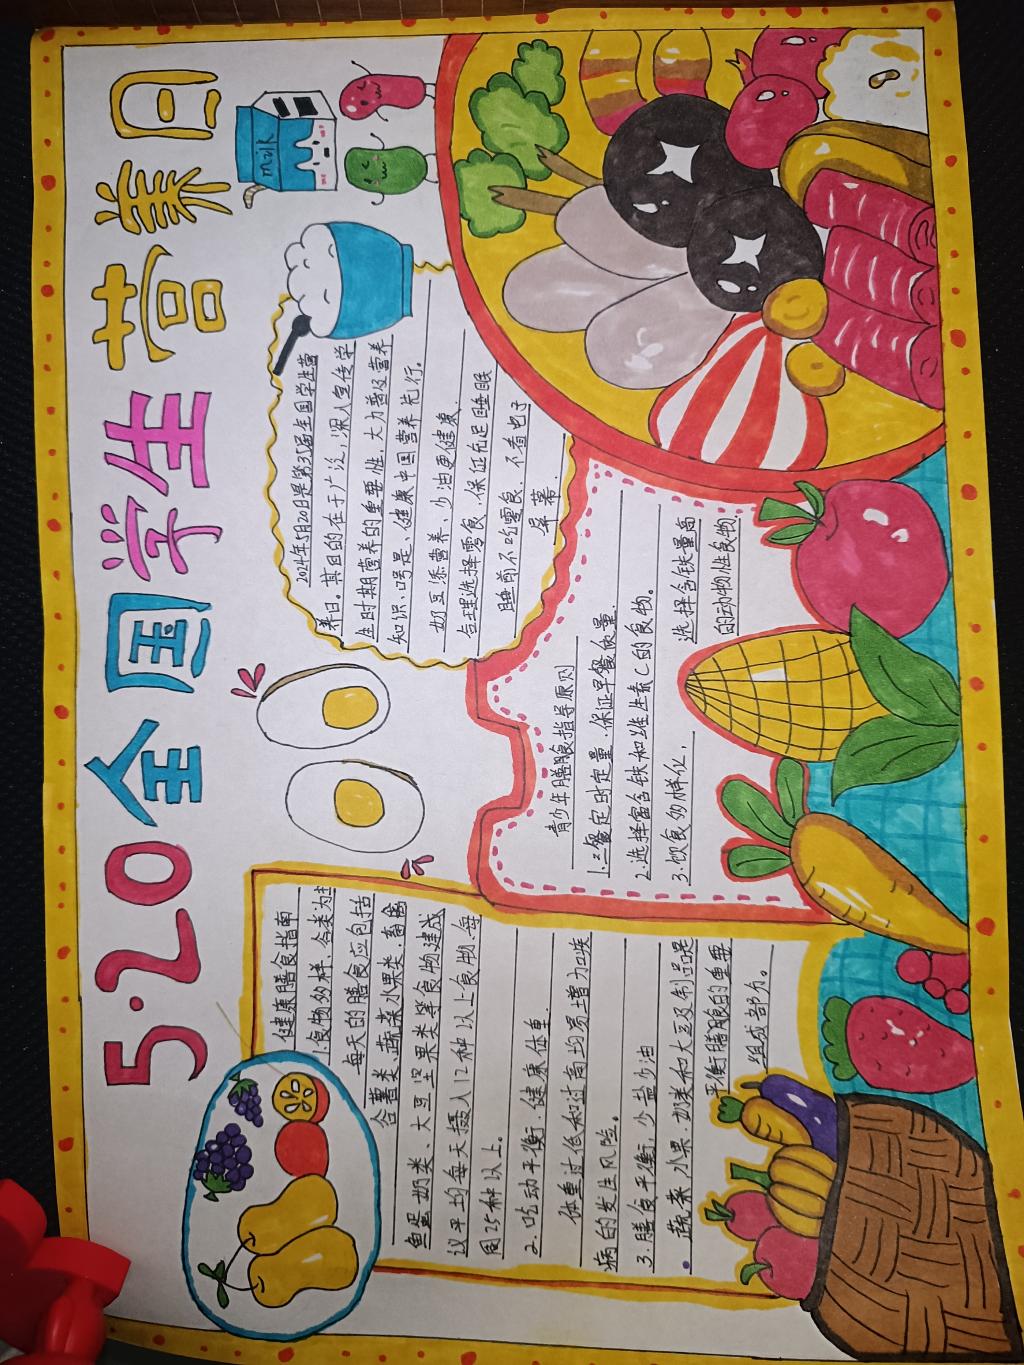 5·20全国学生营养日
milk
健康膳食指南
1.食物多样、谷类为主
每天的膳食应包括
谷薯类、蔬菜水果类、畜禽
鱼蛋奶类、大豆坚果类等食物建成
议平均每天摄入12种以上食物、每
周25种以上。
2.吃动平衡、健康体重.
体重过低和过高均易增加疾
病的发生风险。
3.膳食平衡,少盐少油
蔬菜、水果、奶类和大豆及制品是
平衡膳腹的重要
组成部分。
2024年5月20日是第35届全国学生营
养日。其目的在于广泛,深入宣传学
生时期营养的重要性,大力普及营养
知识、口号是、健康中国营养先行.
奶豆添营养、少油更健康.
合理选择零食、保证充足睡眠
睡前不吃零食、不看电子
屏幕.
青少年膳食指导原则
1.三餐定时定量、保证早餐质量.
2.选择富含铁和维生素C的食物.
3.饮食多样化,
选择含铁量高
的动物性食物.